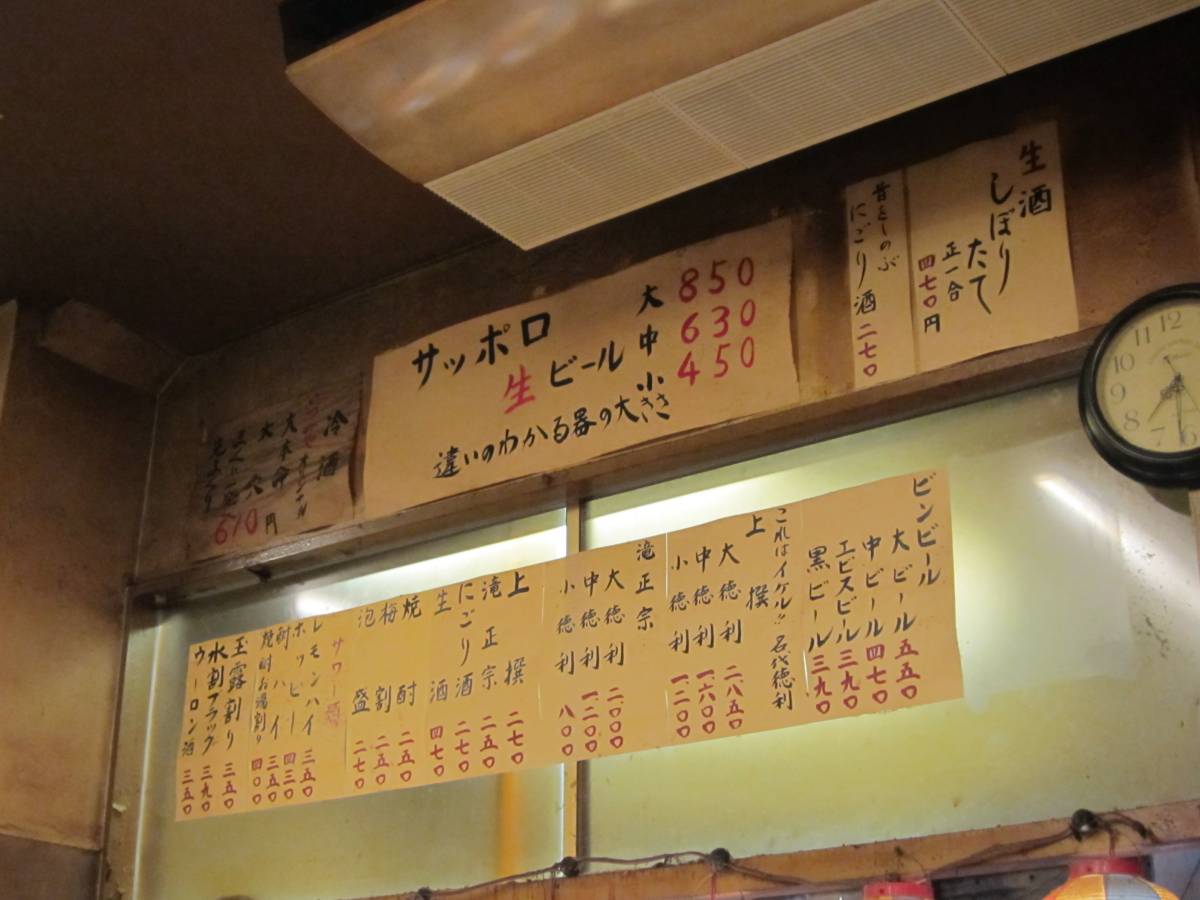 生酒
しぼりたて
正一合
四七〇円
昔をしのぶ
にごり酒 二七〇
サッポロ
生ビール
大 850
中 630
小 450
違いのわかる器の大きさ
冷酒
610円
ビンビール
大ビール 五五〇
中ビール 四七〇
エビスビール 三九〇
黒ビール 三九〇
これはイケル!! 名代徳利
上撰
大徳利 二八五〇
中徳利 一六〇〇
小徳利 一二〇〇
滝正宗
大徳利 二〇〇〇
中徳利 一二〇〇
小徳利 八〇〇
上撰 二七〇
滝正宗 二五〇
にごり酒 二七〇
生酒 四七〇
焼酎 二五〇
梅割 二五〇
泡盛 二七〇
サワー類
レモンハイ 三五〇
ホッピー 四三〇
酎ハイ 三五〇
焼酎お湯割り 四〇〇
玉露割り 三五〇
水割ブラック 三九〇
ウーロン酒 三五〇
12
11
10
9
8
7